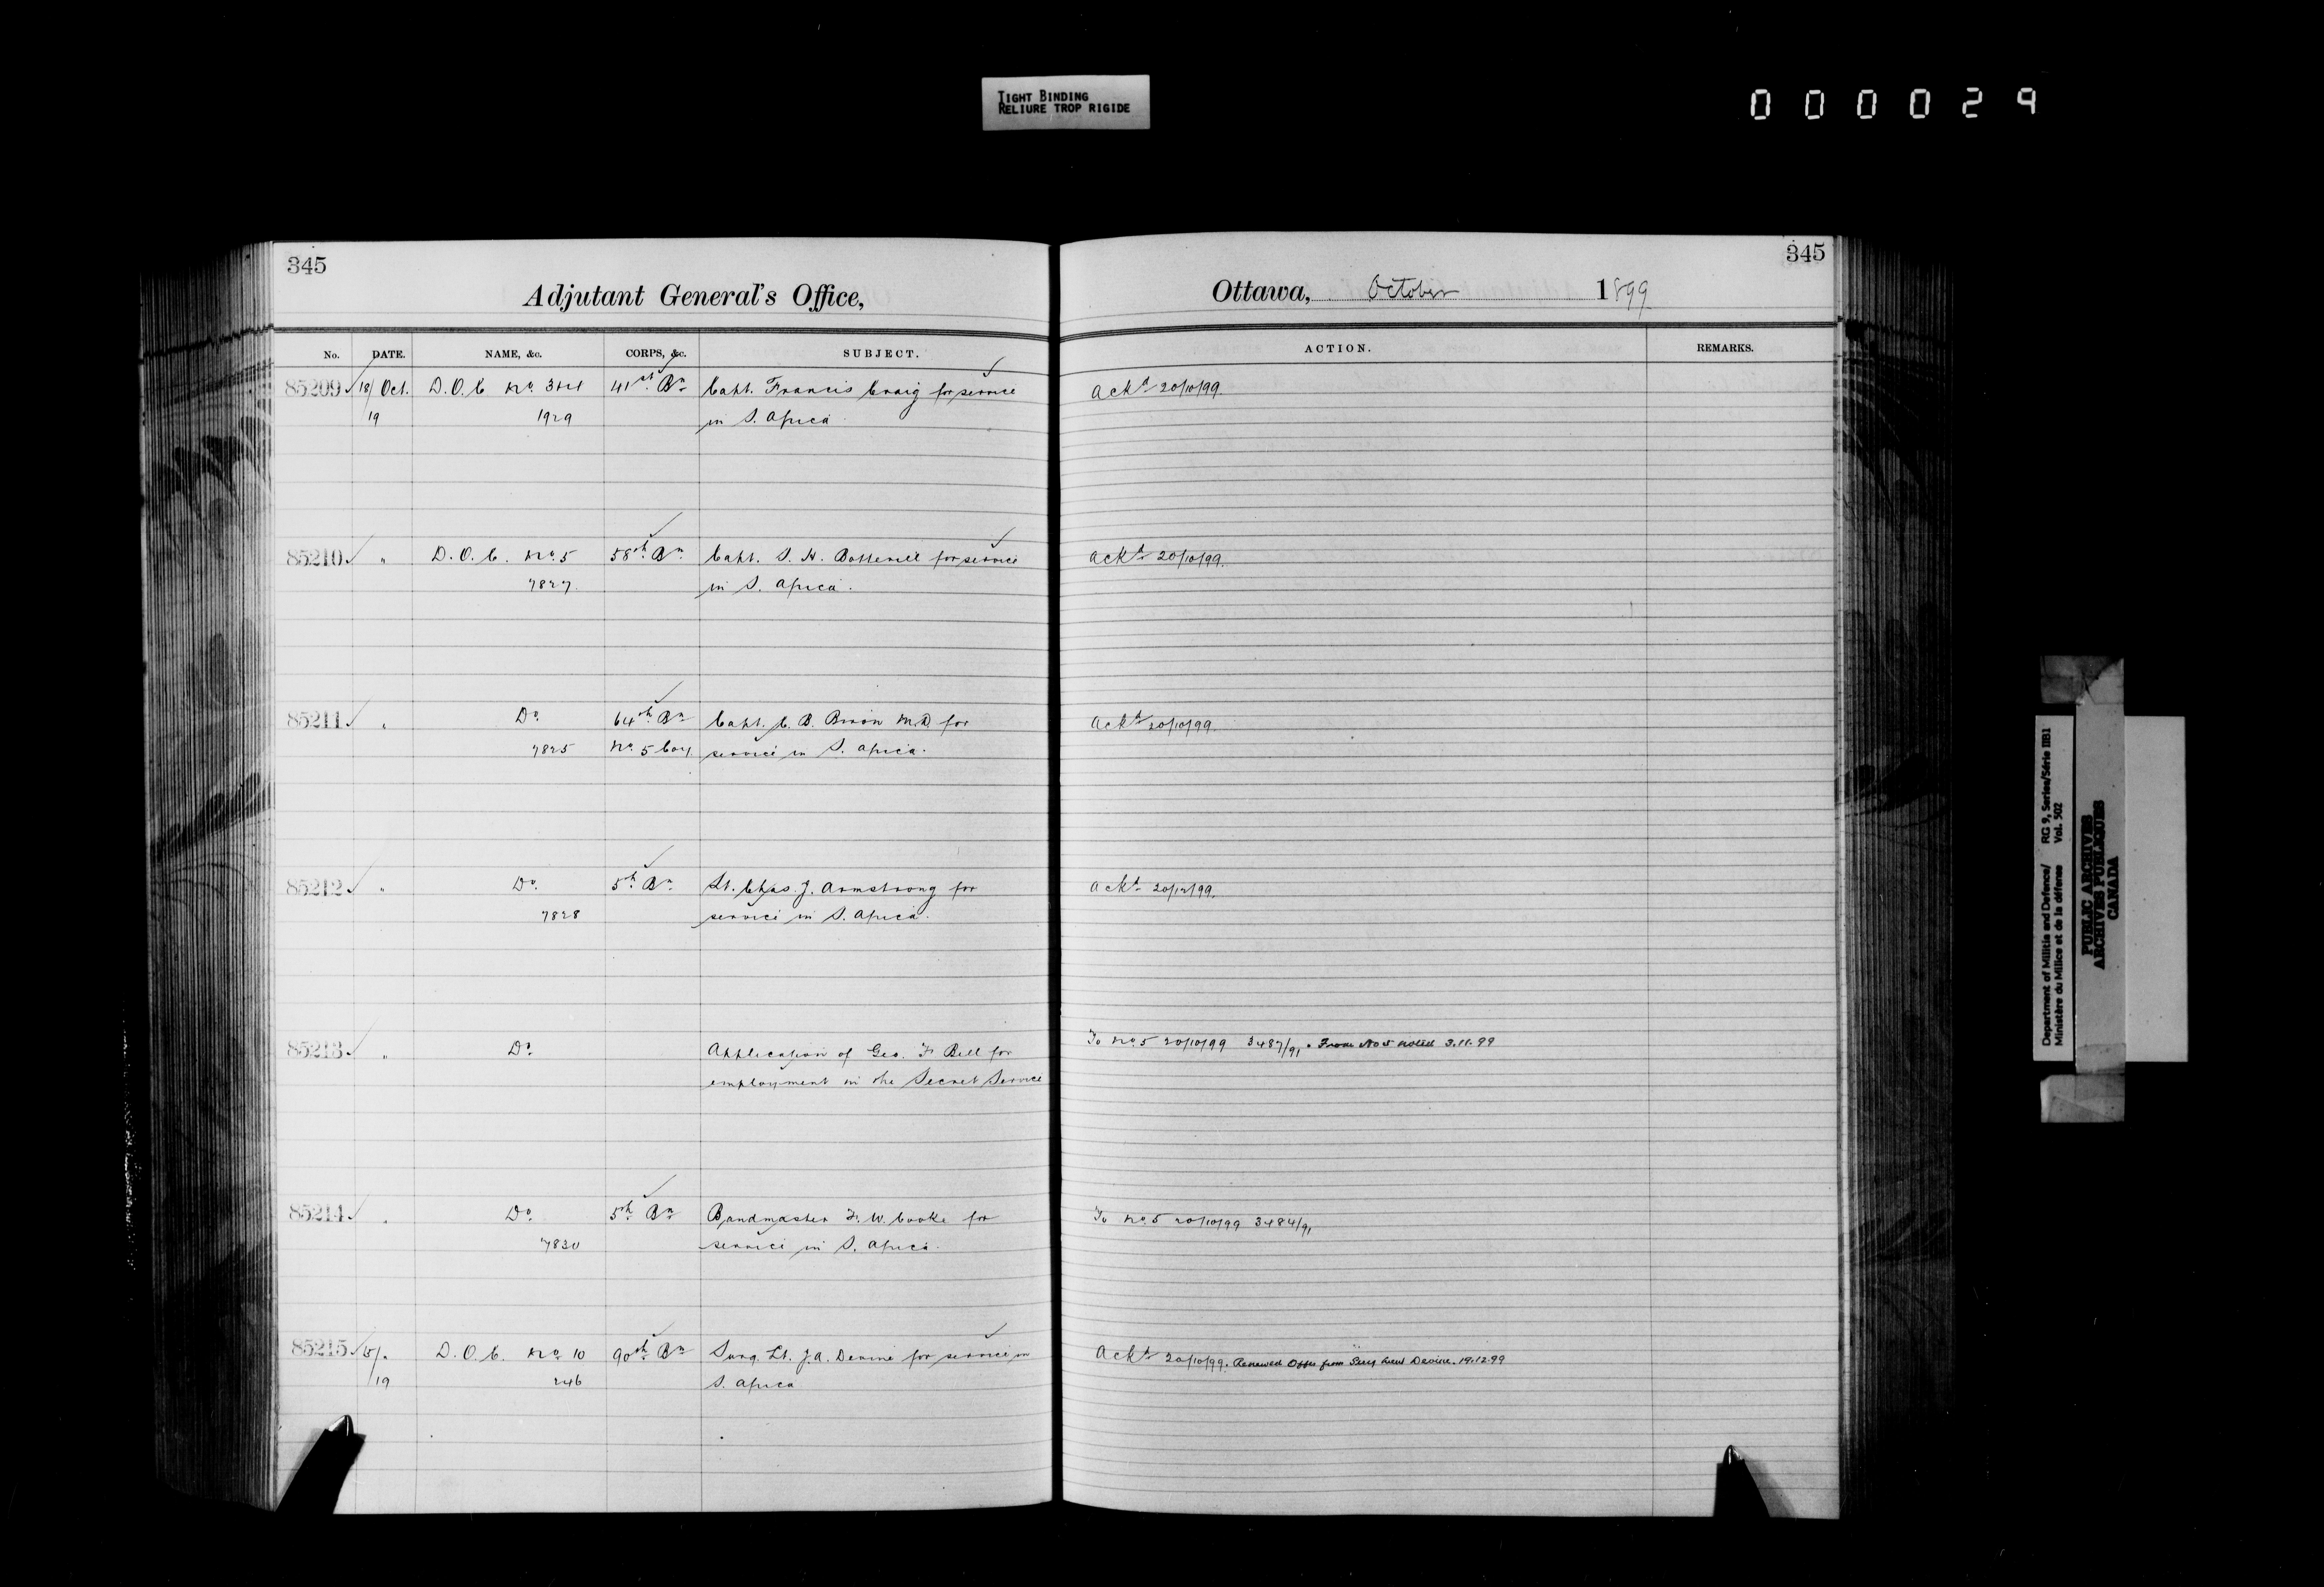 TIGHT BINDING
RELIURE TROP RIGIDE
000029
345
Adjutant General's Office,
No. DATE. NAME, &c. CORPS, &c. SUBJECT.
85209 18/ Oct. D.O.C No. 3&4 41st Bn Capt. Francis Craig for service
19 1929 in S. Africa
85210 " D.O.C. No. 5 58th Bn Capt. S. H. for service
7827. in S. Africa.
85211 " Do. 64th Bn Capt. C. B. M.D for
7825 No. 5 Coy. service in S. Africa.
85212 " Do. 5th Bn Lt. Chas. J. Armstrong for
7828 service in S. Africa.
85213 " Do. Application of Geo. F. Bell for
employment in the Secret Service
85214 " Do. 5th Bn Bandmaster F. W. Cooke for
7830 service in S. Africa.
85215 15/ " D.O.C. No. 10 90th Bn Surg. Lt. J.A. Devine for service in
/19 246 S. Africa
345
Ottawa, October 1899
ACTION. REMARKS.
Ackd 20/10/99.
Ackd 20/10/99.
Ackd 20/10/99.
Ackd 20/10/99.
To No. 5 20/10/99 3487/91. From No 5 3.11.99
To No. 5 20/10/99 3484/91
Ackd 20/10/99. Renewed Offer from Surg Lieut Devine. 19.12.99
Department of Militia and Defence/ RG 9, Series/Série IIB1
Ministère du Milice et de la défense Vol. 502
PUBLIC ARCHIVES
ARCHIVES PUBLIQUES
CANADA